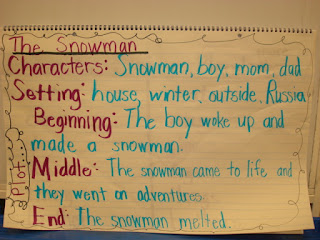 The Snowman
Characters: Snowman, boy, mom, dad
Setting: house, winter, outside, Russia
Plot...
Beginning: The boy woke up and
made a snowman.
Middle: The snowman came to life and
they went on adventures.
End: The snowman melted.